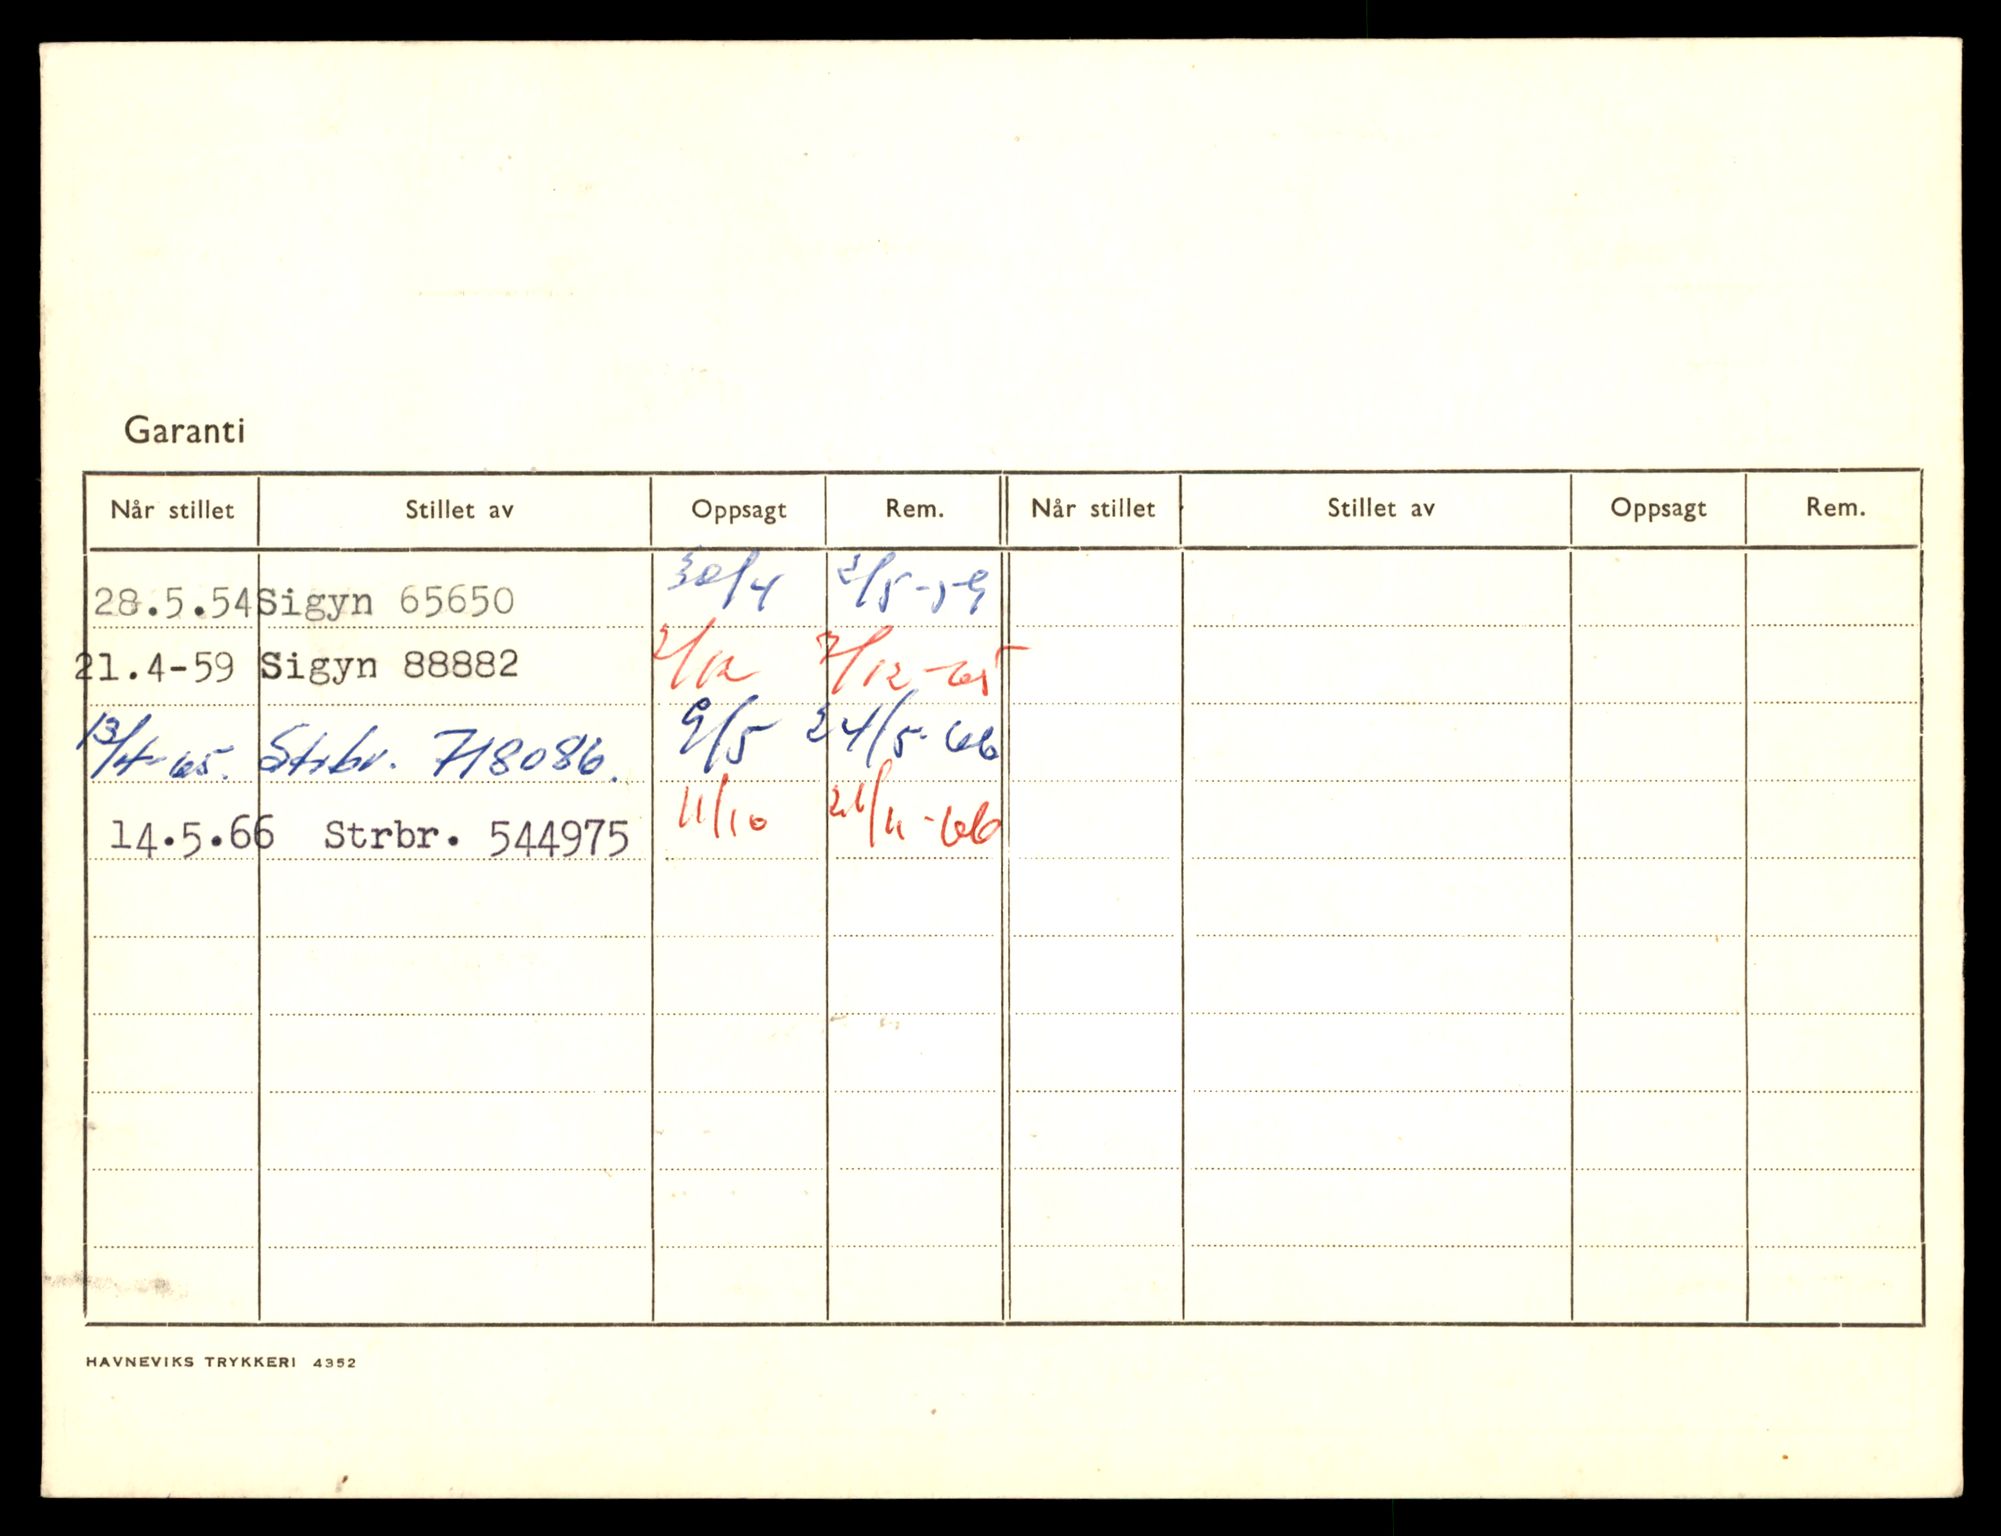 Garanti
Når stillet Stillet av Oppsagt Rem. Når stillet Stillet av Oppsagt Rem.
28.5.54 Sigyn 65650 30/4 2/5-59
21.4-59 Sigyn 88882 2/12 7/12-65
13/4-65. Strbr. 718086. 9/5 24/5-66
14.5.66 Strbr. 544975 11/10 21/11-66
HAVNEVIKS TRYKKERI 4352